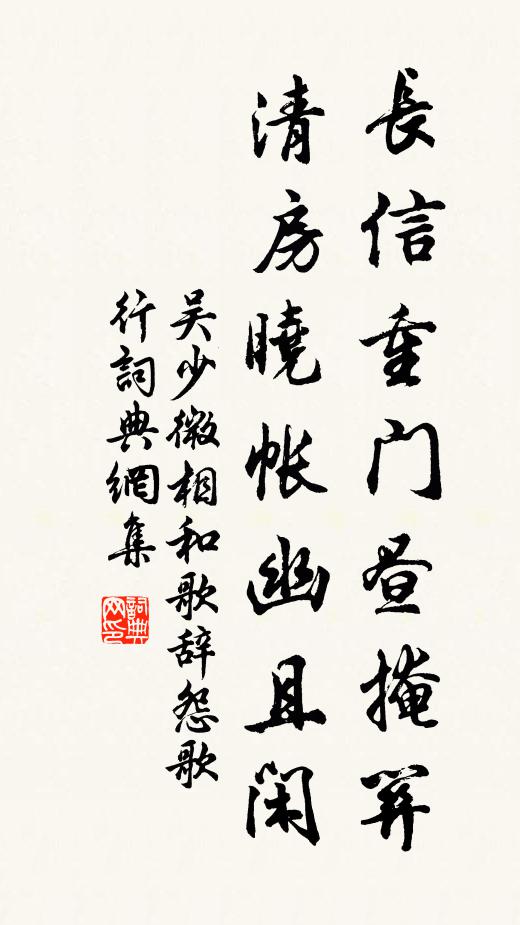 長信重门昼掩關
清房曉帐幽且闲
吴少微相和歌辞怨歌
行詞典網集
詞典网印